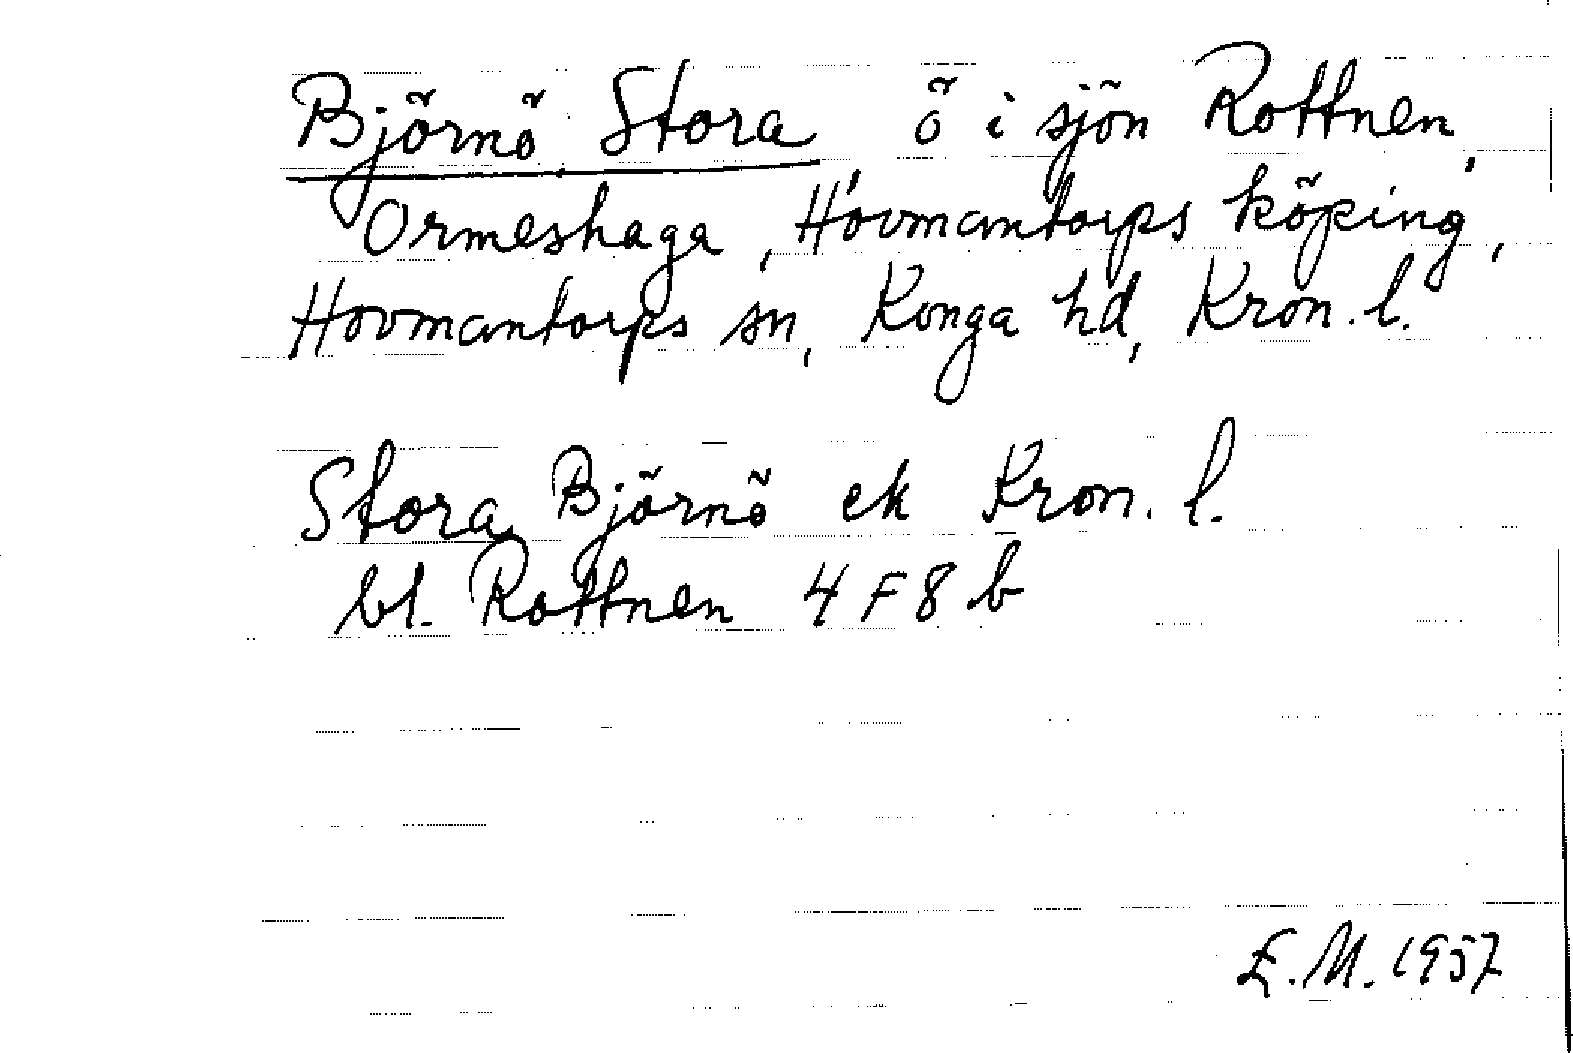 Björnö, Stora, ö i sjön Rottnen,
Ormeshaga, Hovmantorps köping,
Hovmantorps sn, Konga hd, Kron. l.
Stora Björnö ek Kron. l.
bl. Rottnen 4 F 8 b
E.M. 1957